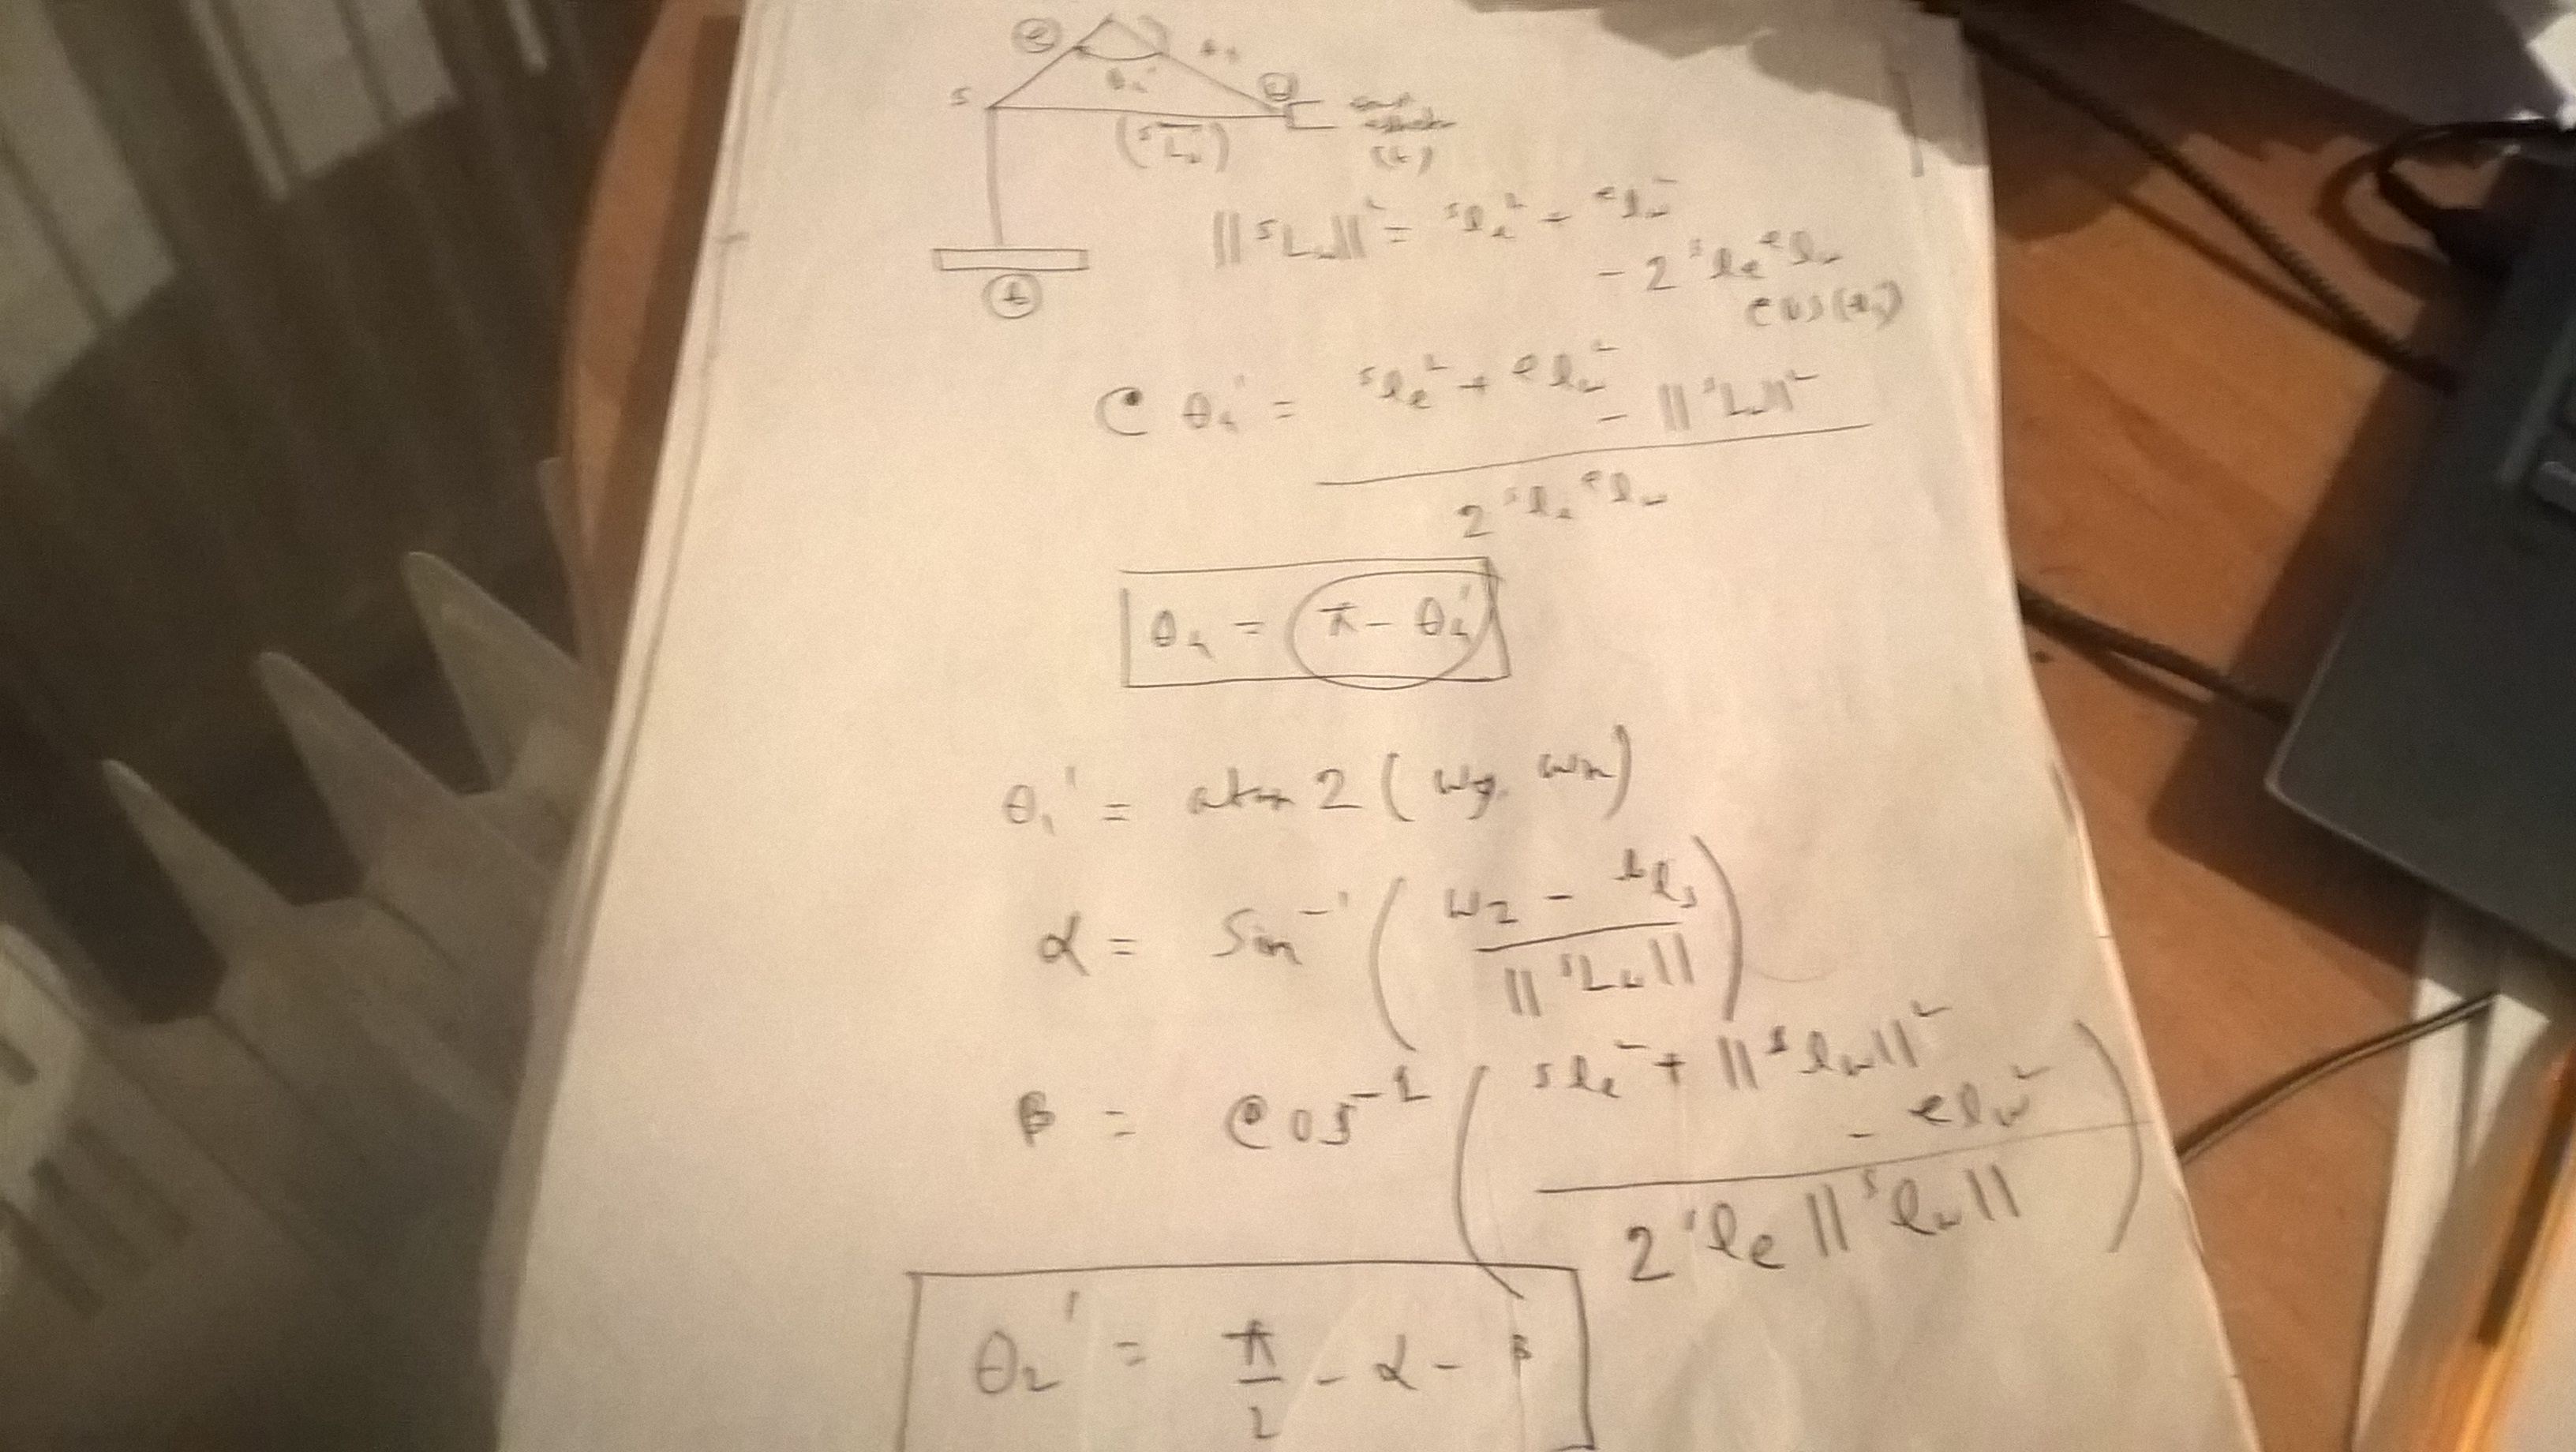 e
s
θ₄'
w
(ˢL̅w)
(t)
b
||ˢLw||² = ˢlₑ² + ᵉlw²
- 2 ˢlₑ ᵉlw
cos(θ₄')
C θ₄' = ˢlₑ² + ᵉlw² - ||ˢLw||²
2 ˢlₑ ᵉlw
θ₄ = π - θ₄'
θ₁' = atan 2 (wy, wx)
α = Sin⁻¹ ( wz - ᵇls
||ˢLw|| )
β = cos⁻¹ ( ˢlₑ² + ||ˢlw||²
- ᵉlw²
2 ˢlₑ ||ˢlw|| )
θ₂' = π/2 - α - β